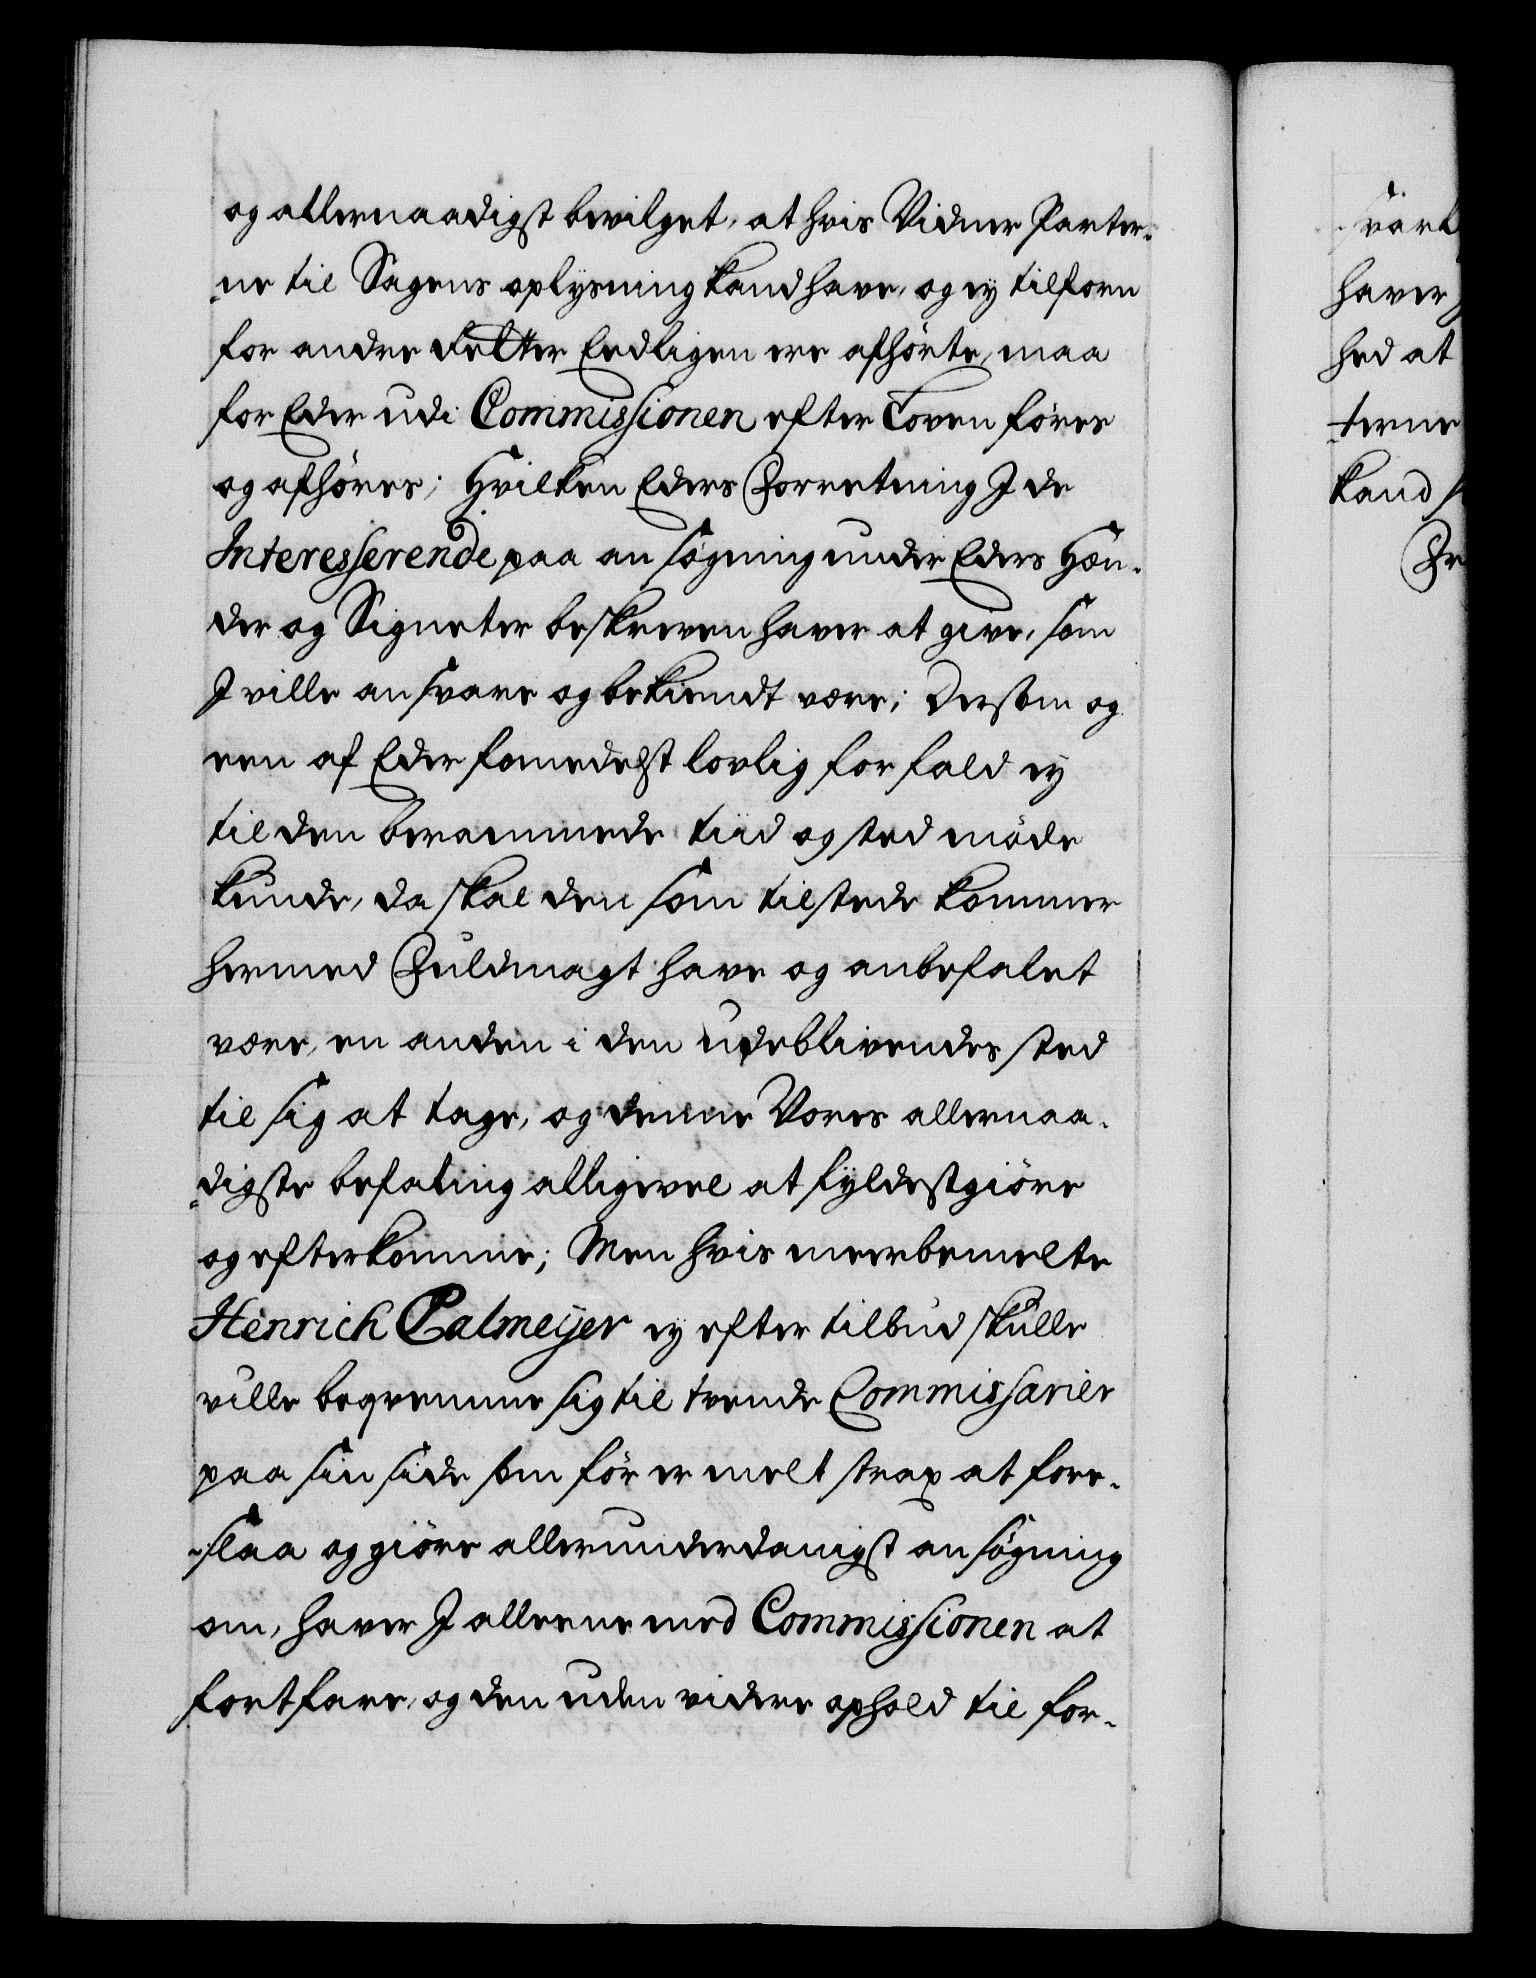 og allernaadigst bevilget, at hvis Vidner Parter-
-ne til Sagens oplysning kand have, og ey tilforn
for andre Retter Eedligen ere afhörte, maa
for Eder udi Commissionen efter Loven föres
og afhöres; Hvilken Eders Forretning I de
Interesserende paa ansögning under Eders Hæn-
der og Signeter beskreven haver at give, som
I ville ansvare og bekiendt være; Dersom og
een af Eder formedelst lovlig forfald ey
til den berammede tiid og sted möde
kunde, da skal den som tilstede kommer
hermed Fuldmagt have og anbefalet
være, en anden i den udeblivendes sted
til sig at tage, og denne Vores allernaa-
-digste befaling alligevel at fyldestgiöre
og efterkomme; Men hvis meerbemelte
Henrich Calmeÿer ey efter tilbud skulle
ville beqvemme sig til trende Commissarier
paa sin side som för er melt strax at fore-
-slaa og giöre allerunderdanigst ansögning
om, haver I alleene med Commissionen at
fortfare, og den uden videre ophold til for-
vark
haver
hed at
-terne
kand s
Fr